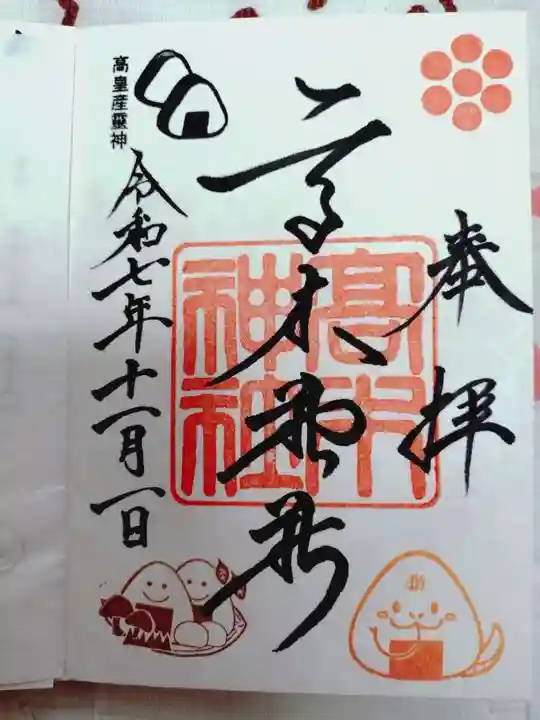 奉拝
高木神社
高木
神社
高皇産靈神
令和七年十一月一日